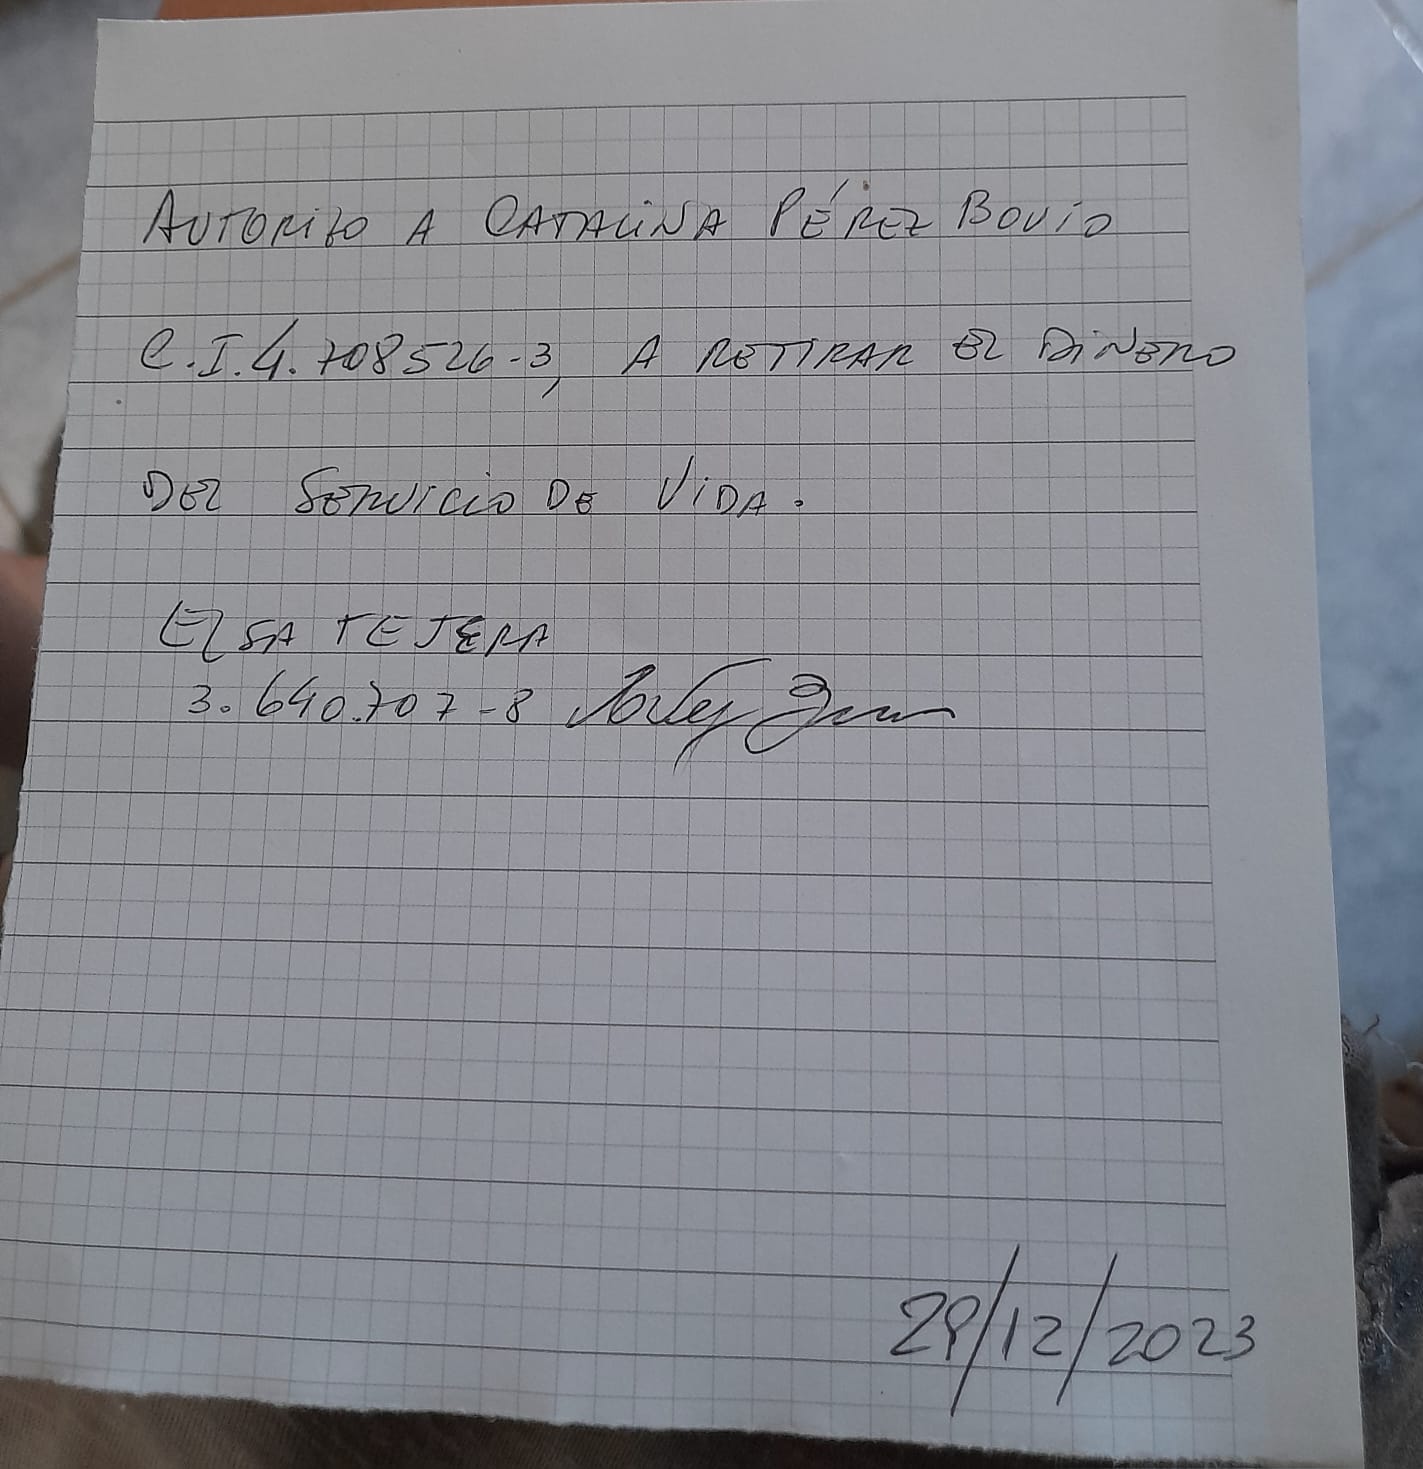 AUTORIZO A CATALINA PÉREZ BOVIO
C.I.4.708526-3, A RETIRAR EL DINERO
DEL SERVICIO DE VIDA.
ELSA TEJERA
3.640.707-8
29/12/2023